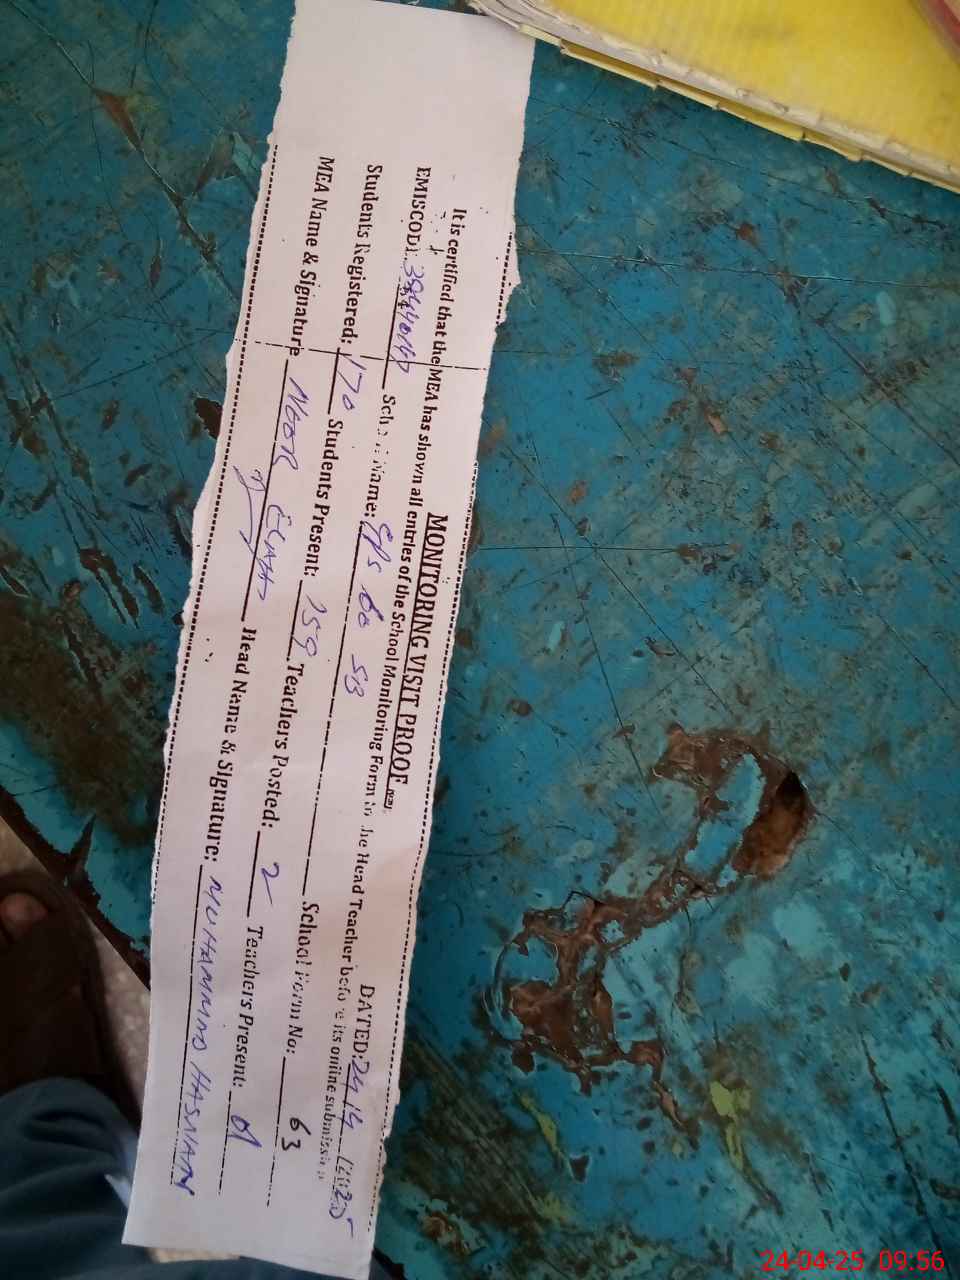 MONITORING VISIT PROOF
DATED: 24/4/2025
It is certified that the MEA has shown all entries of the School Monitoring Form to the Head Teacher before its online submission
EMISCODE: School Name: GPS 60 SB School Form No: 63
Students Registered: 170 Students Present: 159 Teachers Posted: 2 Teachers Present:
MEA Name & Signature NOOR Head Name & Signature: MUHAMMAD HASSAN
24-04-25 09:56